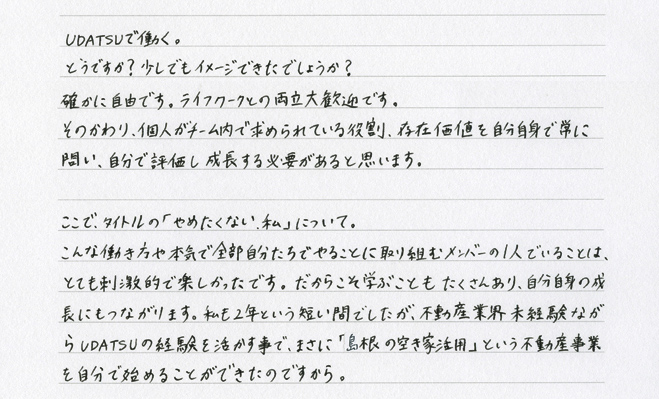 UDATSUで働く。
どうですか？少しでもイメージできたでしょうか？
確かに自由です。ライフワークとの両立大歓迎です。
そのかわり、個人がチーム内で求められている役割、存在価値を自分自身で常に
問い、自分で評価し成長する必要があると思います。
ここで、タイトルの「やめたくない、私」について。
こんな働き方や本気で全部自分たちでやることに取り組むメンバーの1人でいることは、
とても刺激的で楽しかったです。だからこそ学ぶこともたくさんあり、自分自身の成
長にもつながります。私も2年という短い間でしたが、不動産業界未経験なが
らUDATSUの経験を活かす事で、まさに「島根の空き家活用」という不動産事業
を自分で始めることができたのですから。